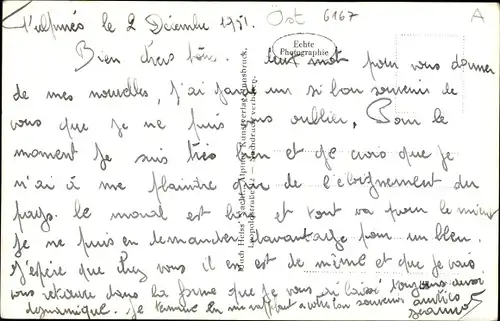 le 2 Décembre 1951. Öst 6167 A
Echte
Photographie
Bien chers tous. mot pour vous donner
de mes nouvelles, j'ai gardé un si bon souvenir de
vous que je ne puis vous oublier, Pour le
moment je suis très bien et je crois que je
n'ai à me plaindre que de l'éloignement du
pays. le moral est bon et tout va pour le mieux
je ne puis en demander davantage pour un bleu.
J'espère que chez vous il en est de même et que je vais
vous retrouver dans la forme que je vous ai laissé toujours aussi
dynamique. je termine en me rappelant à votre bon souvenir amitiés